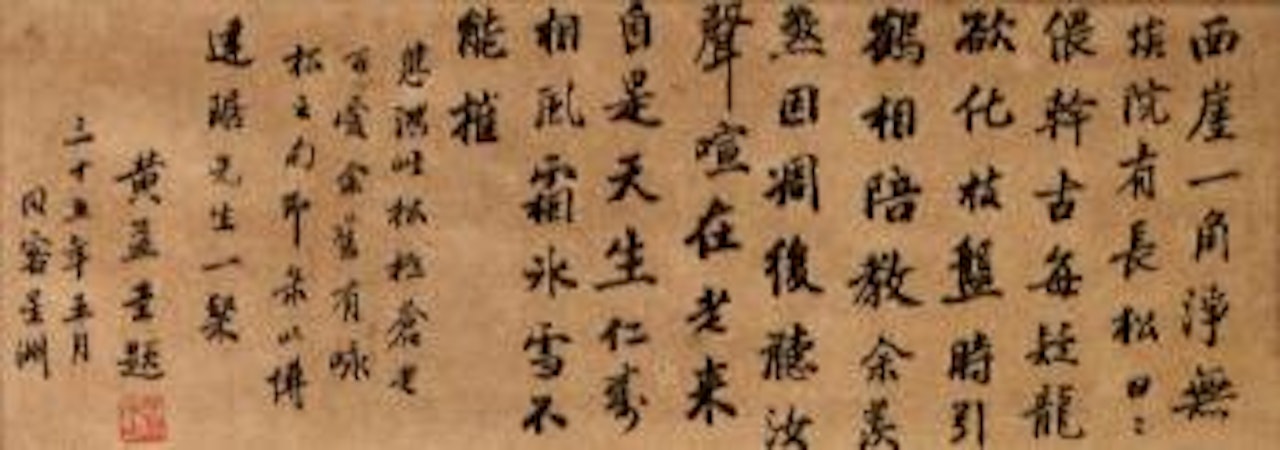 西崖一角淨無
埃院有長松日〻
偎幹古每疑龍
欲化枝盤時引
鶴相陪教余羡
煞因凋後聽汝
聲喧在老來
自是天生仁壽
相風霜冰雪不
能摧
悲鴻此松極蒼老
可愛余舊有咏
松之句即录以博
先生一粲
黄孟圭題
十五年五月
同客星洲